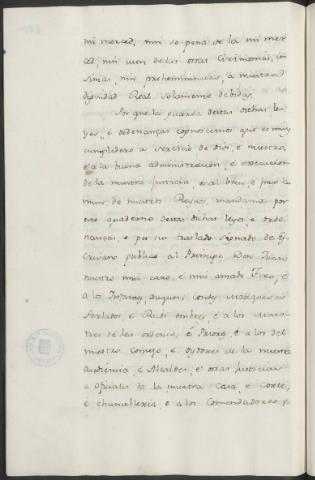 mi merced, nin so pena de la mi mer
ced, nin usen de las otras Cerimonias, in
sinias, nin prehemminencias, a nuestra
dignidad Real solamente debidas.
Por que la guarda destas dichas le
yes, é ordenanzas cognoscemos que es muy
cumplidero a servicio de Dios, e nuestro,
é a la buena administracion, é execucion
de la nuestra justicia, é al bien, é pro co
mun de nuestros Reynos, mandamos por
este quaderno destas dichas leyes, é orde
nanzas, é por su traslado signado de Es
crivano publico al Principe Don Juan
nuestro mui caro, é mui amado fixo, é
a los Infantes, Duques, Condes, Marqueses
Perlados é Ricos ombres, é a los Maes
tres de las ordenes, é Priores, é a los del
nuestro Consejo, é Oydores de la nuestra
audiencia, é Alcaldes, é otras justicias
é oficiales de la nuestra Casa, é Corte,
é chancelleria, é a los Comendadores é